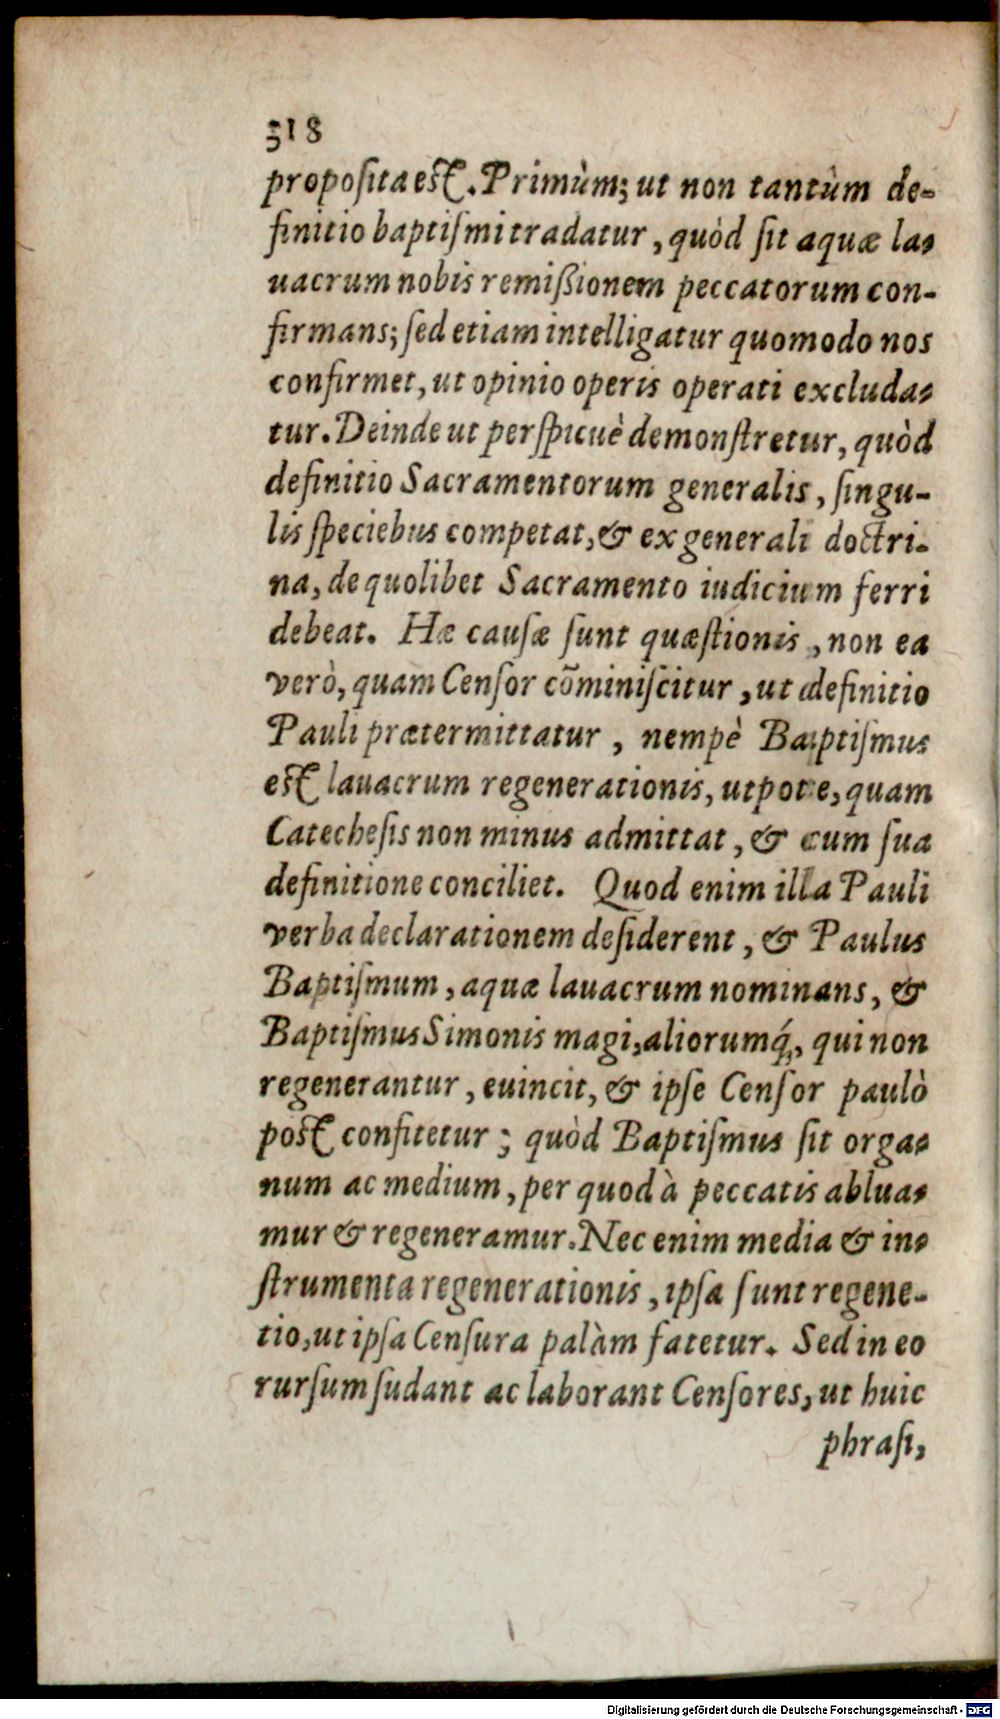 318
propoſita eſt. Primùm; ut non tantùm de-
finitio baptiſmi tradatur, quòd ſit aquæ la-
uacrum nobis remißionem peccatorum con-
firmans; ſed etiam intelligatur quomodo nos
confirmet, ut opinio operis operati excluda-
tur. Deinde ut perſpicuè demonſtretur, quòd
definitio Sacramentorum generalis, ſingu-
lis ſpeciebus competat, & ex generali doctri-
na, de quolibet Sacramento iudicium ferri
debeat. Hæ cauſæ ſunt quæſtionis, non ea
verò, quam Cenſor cõminiſcitur, ut definitio
Pauli prætermittatur, nempè Baptiſmus
eſt lauacrum regenerationis, utpote, quam
Catecheſis non minus admittat, & cum ſua
definitione conciliet. Quod enim illa Pauli
verba declarationem deſiderent, & Paulus
Baptiſmum, aquæ lauacrum nominans, &
Baptiſmus Simonis magi, aliorumq́;, qui non
regenerantur, euincit, & ipſe Cenſor paulò
poſt confitetur; quòd Baptiſmus ſit orga-
num ac medium, per quod à peccatis ablua-
mur & regeneramur. Nec enim media & in-
ſtrumenta regenerationis, ipſa ſunt regene-
tio, ut ipſa Cenſura palàm fatetur. Sed in eo
rurſum ſudant ac laborant Cenſores, ut huic
phraſi,
Digitalisierung gefördert durch die Deutsche Forschungsgemeinschaft - DFG